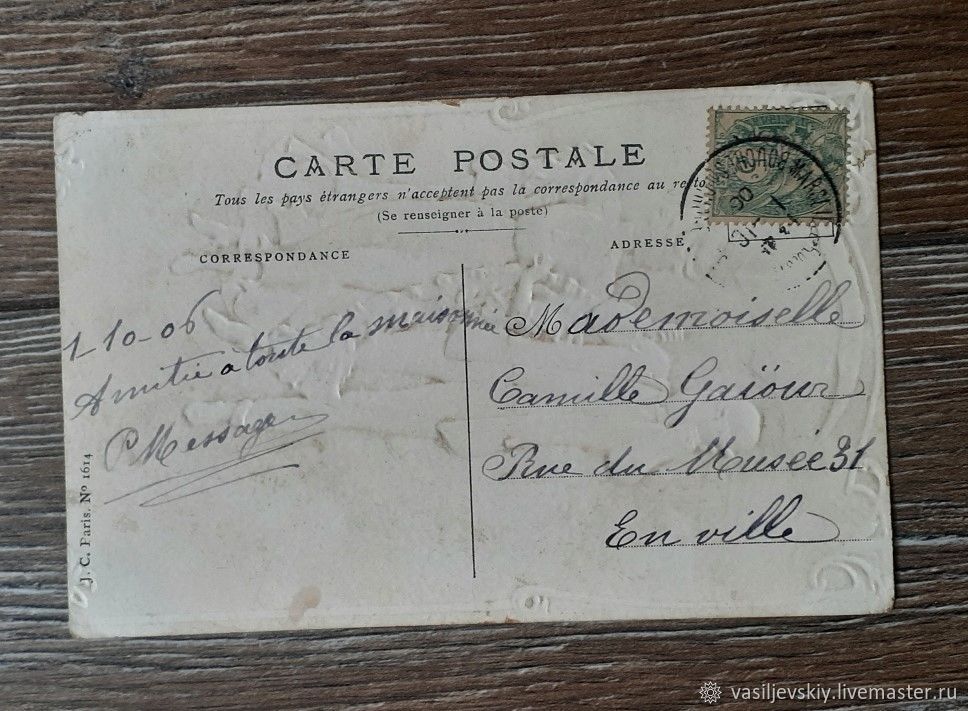 CARTE POSTALE
Tous les pays étrangers n'acceptent pas la correspondance au recto
(Se renseigner à la poste)
CORRESPONDANCE
ADRESSE
1-10-06
Amitié à toute la maisonnée
P Messager
Mademoiselle
Camille Gaïour
Rue du Musée 31
En ville
J. C. Paris. Nº 1614
vasiljevskiy.livemaster.ru